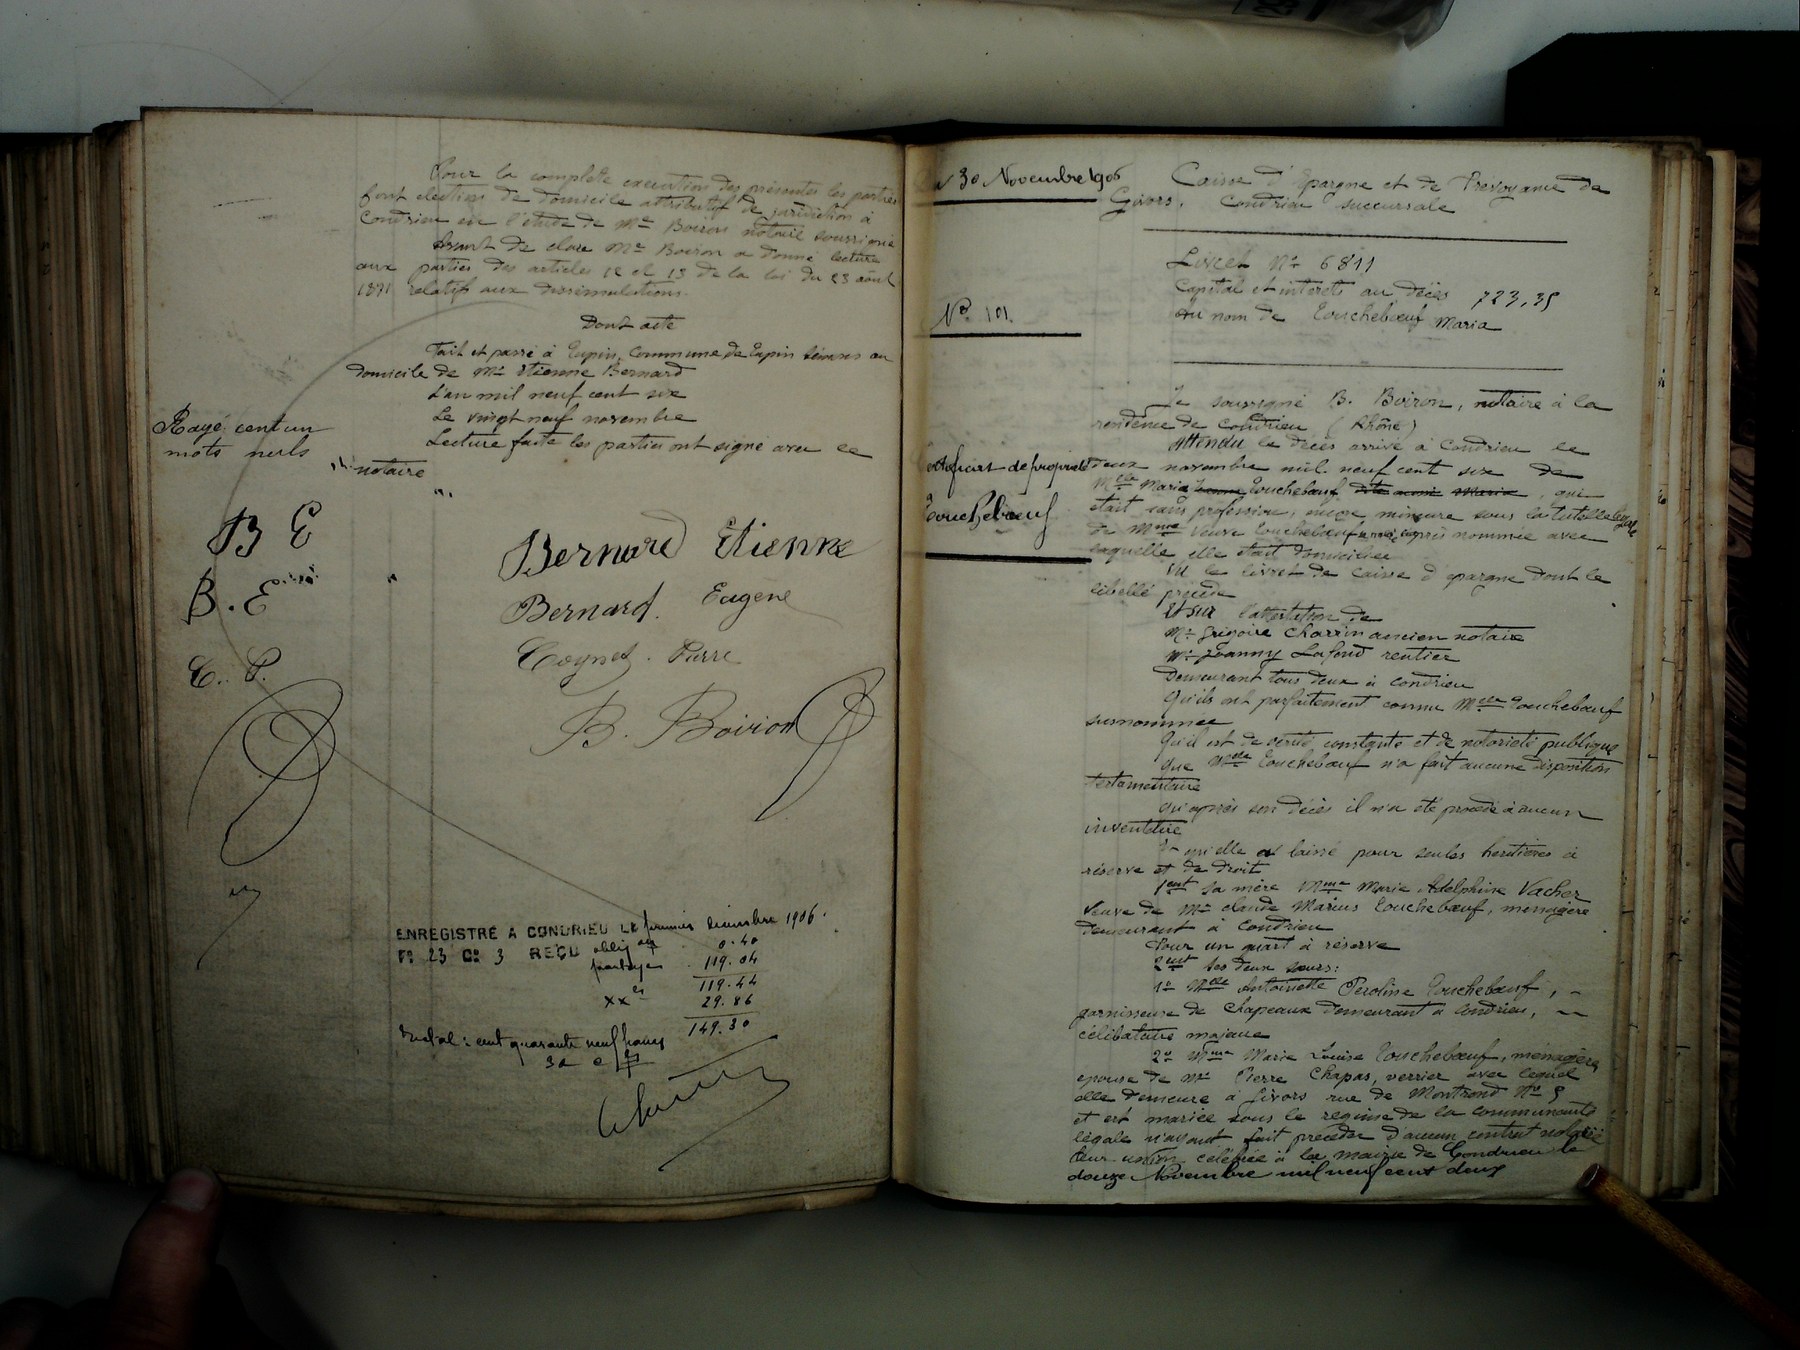 Pour la complette execution des présentes les parties
font election de domicile attributif de juridiction à
Condrieu en l'étude de Me Boiron notaire soussigné
Avant de clore Me Boiron a donné lecture
aux parties des articles 12 et 13 de la loi du 23 août
1871 relatifs aux dissimulations.
Dont acte
Fait et passé à Tupin, Commune de Tupin Semons au
domicile de Mr Etienne Bernard
L'an mil neuf cent six
Le vingt neuf novembre
Lecture faite les parties ont signé avec le
notaire
Rayé cent un
mots nuls
B E
B. E
C. P.
Bernard Etienne
Bernard. Eugène
Coynet. Pierre
B. Boiron
ENREGISTRÉ A CONDRIEU LE premier décembre 1906.
Fo 23 Co 3 REÇU oblig on 0.40
partage 119.04
119.44
xx es 29.86
149.30
Total: cent quarante neuf francs
30 c
30 Novembre 1906
No 101.
de propriété
Touchebœuf
Caisse d'Epargne et de Prevoyance de
Givors. Condrieu succursale
Livret No 6811
Capital et interets au décès 723,35
au nom de Touchebœuf Maria
Je soussigné B. Boiron, notaire à la
residence de Condrieu (Rhône)
Attendu le décès arrivé à Condrieu le
deux novembre mil neuf cent six de
Melle Maria Touchebœuf dite aussi Maria, qui
était sans profession, mineure sous la tutelle légale
de Mme Veuve Touchebœuf ci après nommée avec
laquelle elle était domiciliée
Vu le livret de caisse d'epargne dont le
libellé précède
Et sur l'attestation de
Mr Grégoire Charrin ancien notaire
Mr Joanny Lafond rentier
Demeurant tous deux à Condrieu
Qu'ils ont parfaitement connu Melle Touchebœuf
susnommée
Qu'il est de vérité constante et de notoriété publique
Que Melle Touchebœuf n'a fait aucune disposition
testamentaire
Qu'après son décès il n'a été procédé à aucun
inventaire
qu'elle a laissé pour seules heritières à
réserve et de droit
1ent sa mère Mme Marie Adelphine Vacher
Veuve de Mr Claude Marius Touchebœuf, menagère
demeurant à Condrieu
Pour un quart à réserve
2ent ses deux sœurs:
1o Melle Antoinette Peroline Touchebœuf,
garnisseuse de Chapeaux demeurant à Condrieu,
célibataire majeure
2o Mme Marie Louise Touchebœuf, ménagère,
epouse de Mr Pierre Chapas, verrier avec lequel
elle demeure à Givors rue de Montrond No 5
et est mariée sous le regime de la communauté
légale n'ayant fait précéder d'aucun contrat notarié
leur union célébrée à la mairie de Condrieu le
douze Novembre mil neuf cent deux